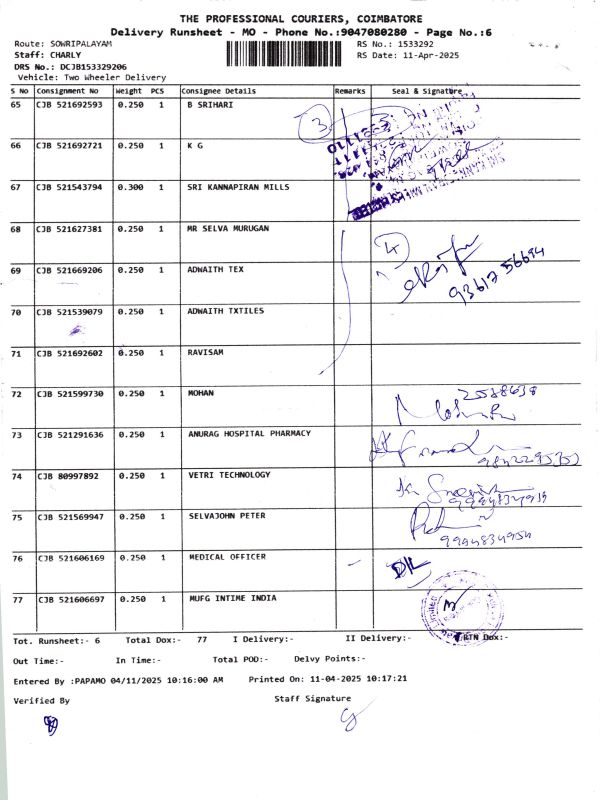 THE PROFESSIONAL COURIERS, COIMBATORE
Delivery Runsheet - MO - Phone No.:9047080280 - Page No.:6
Route: SOWRIPALAYAM RS No.: 1533292
Staff: CHARLY RS Date: 11-Apr-2025
DRS No.: DCJB153329206
Vehicle: Two Wheeler Delivery
S No Consignment No Weight PCS Consignee Details Remarks Seal & Signature
65 CJB 521692593 0.250 1 B SRIHARI
3
66 CJB 521692721 0.250 1 K G
67 CJB 521543794 0.300 1 SRI KANNAPIRAN MILLS
68 CJB 521627381 0.250 1 MR SELVA MURUGAN
4
69 CJB 521669206 0.250 1 ADWAITH TEX
93617 56694
70 CJB 521539079 0.250 1 ADWAITH TXTILES
71 CJB 521692602 0.250 1 RAVISAM
72 CJB 521599730 0.250 1 MOHAN
73 CJB 521291636 0.250 1 ANURAG HOSPITAL PHARMACY
74 CJB 80997892 0.250 1 VETRI TECHNOLOGY
75 CJB 521569947 0.250 1 SELVAJOHN PETER
9994834954
76 CJB 521606169 0.250 1 MEDICAL OFFICER
77 CJB 521606697 0.250 1 MUFG INTIME INDIA
Tot. Runsheet:- 6 Total Dox:- 77 I Delivery:- II Delivery:- RTN Dox:-
Out Time:- In Time:- Total POD:- Delvy Points:-
Entered By :PAPAMO 04/11/2025 10:16:00 AM Printed On: 11-04-2025 10:17:21
Verified By Staff Signature